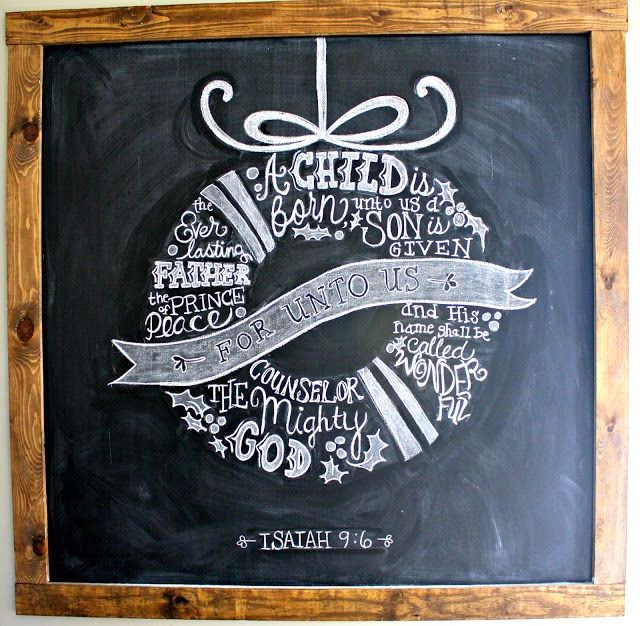 FOR UNTO US
A CHILD is
born, unto us a
SON is
GIVEN
and His
name shall be
called
WONDER
FUL
COUNSELOR
THE Mighty
GOD
the
Ever
lasting
FATHER
the PRINCE
of
Peace
ISAIAH 9:6